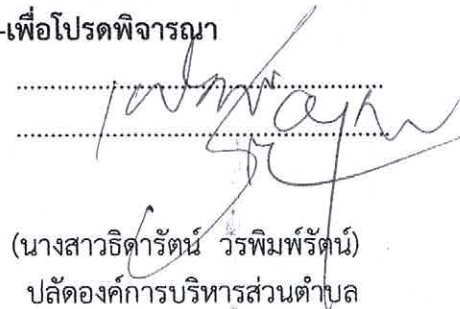 -เพื่อโปรดพิจารณา
(นางสาวธิดารัตน์ วรพิมพ์รัตน์)
ปลัดองค์การบริหารส่วนตำบล